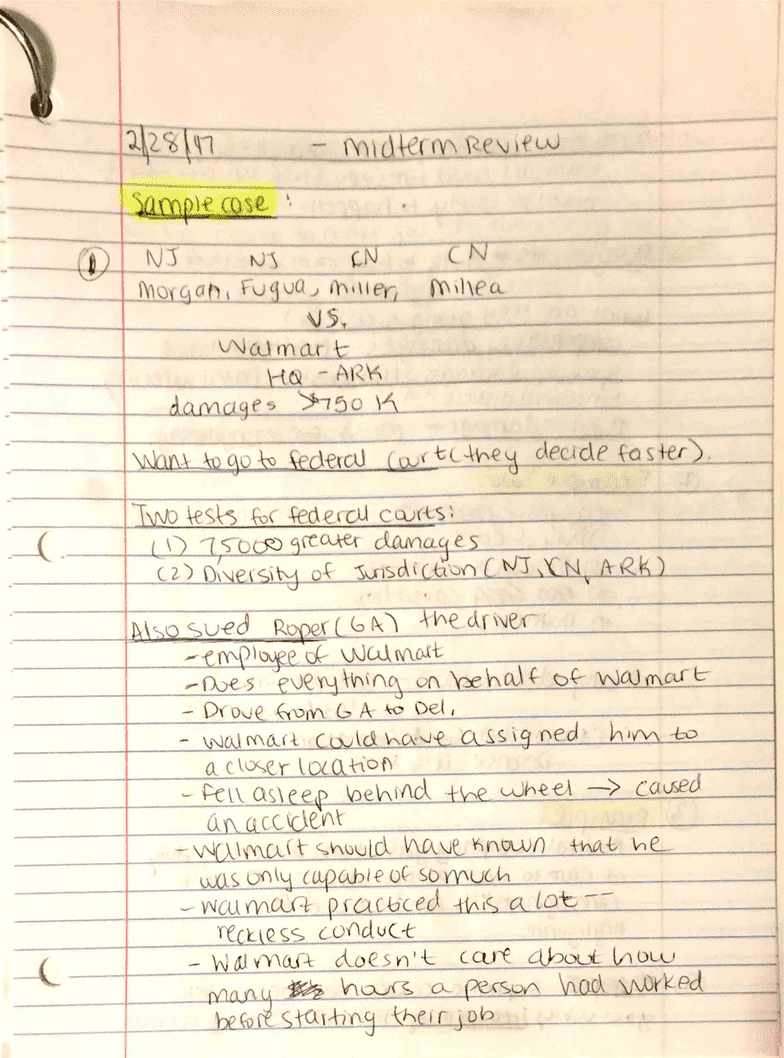 2/28/17 - midterm Review
Sample case :
① NJ NJ CN CN
Morgan, Fugua, miller, Millea
VS.
Walmart
HQ - ARK
damages >$750 K
Want to go to federal court (they decide faster).
Two tests for federal courts:
(1) 75000 greater damages
(2) Diversity of Jurisdiction (NJ, CN, ARK)
Also sued Roper (GA) the driver
- employee of Walmart
- Does everything on behalf of Walmart
- Drove from GA to Del.
- Walmart could have assigned him to
a closer location
- fell asleep behind the wheel → caused
an accident
- Walmart should have known that he
was only capable of so much
- Walmart practiced this a lot --
reckless conduct
- Walmart doesn't care about how
many hours a person had worked
before starting their job